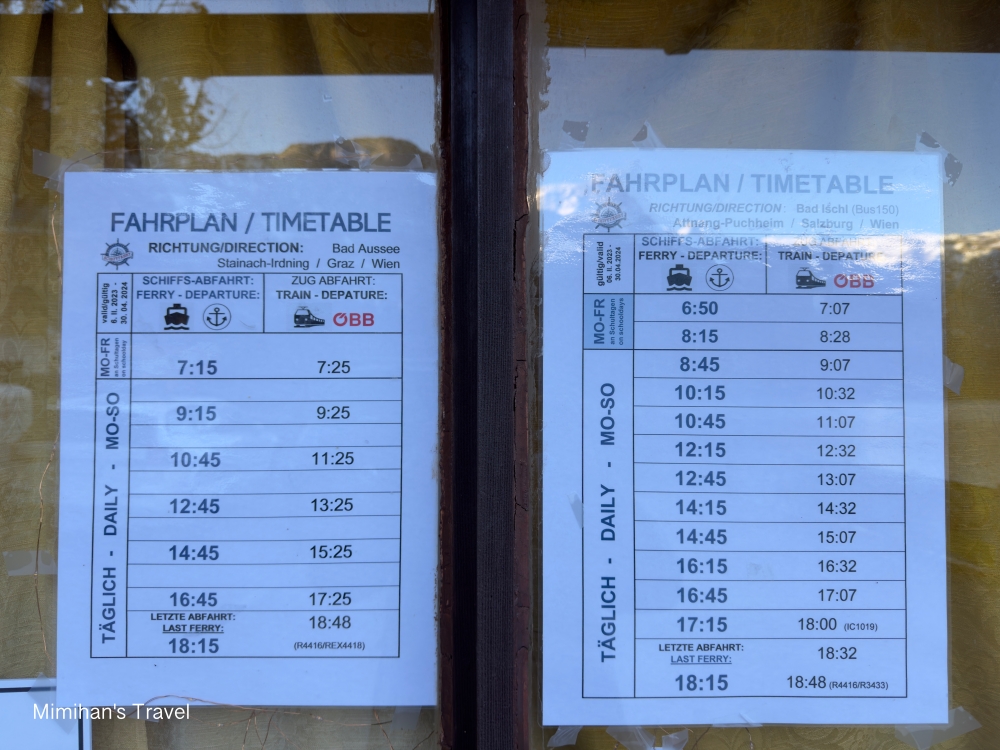 FAHRPLAN / TIMETABLE
RICHTUNG/DIRECTION: Bad Aussee
Stainach-Irdning / Graz / Wien
valid/gültig
6. II. 2023 -
30. 04. 2024
SCHIFFS-ABFAHRT: ZUG ABFAHRT:
FERRY - DEPARTURE: TRAIN - DEPATURE:
ÖBB
MO-FR
an Schultagen
on schoolday
7:15 7:25
TÄGLICH - DAILY - MO-SO
9:15 9:25
10:45 11:25
12:45 13:25
14:45 15:25
16:45 17:25
LETZTE ABFAHRT: 18:48
LAST FERRY:
18:15 (R4416/REX4418)
FAHRPLAN / TIMETABLE
RICHTUNG/DIRECTION: Bad Ischl (Bus150)
Attnang-Puchheim / Salzburg / Wien
gültig/valid
06. II. 2023 -
30.04.2024
SCHIFFS-ABFAHRT: ZUG ABFAHRT:
FERRY - DEPARTURE: TRAIN - DEPATURE:
ÖBB
MO-FR
an Schultagen
on schooldays
6:50 7:07
8:15 8:28
TÄGLICH - DAILY - MO-SO
8:45 9:07
10:15 10:32
10:45 11:07
12:15 12:32
12:45 13:07
14:15 14:32
14:45 15:07
16:15 16:32
16:45 17:07
17:15 18:00 (IC1019)
LETZTE ABFAHRT: 18:32
LAST FERRY:
18:15 18:48 (R4416/R3433)
Mimihan's Travel